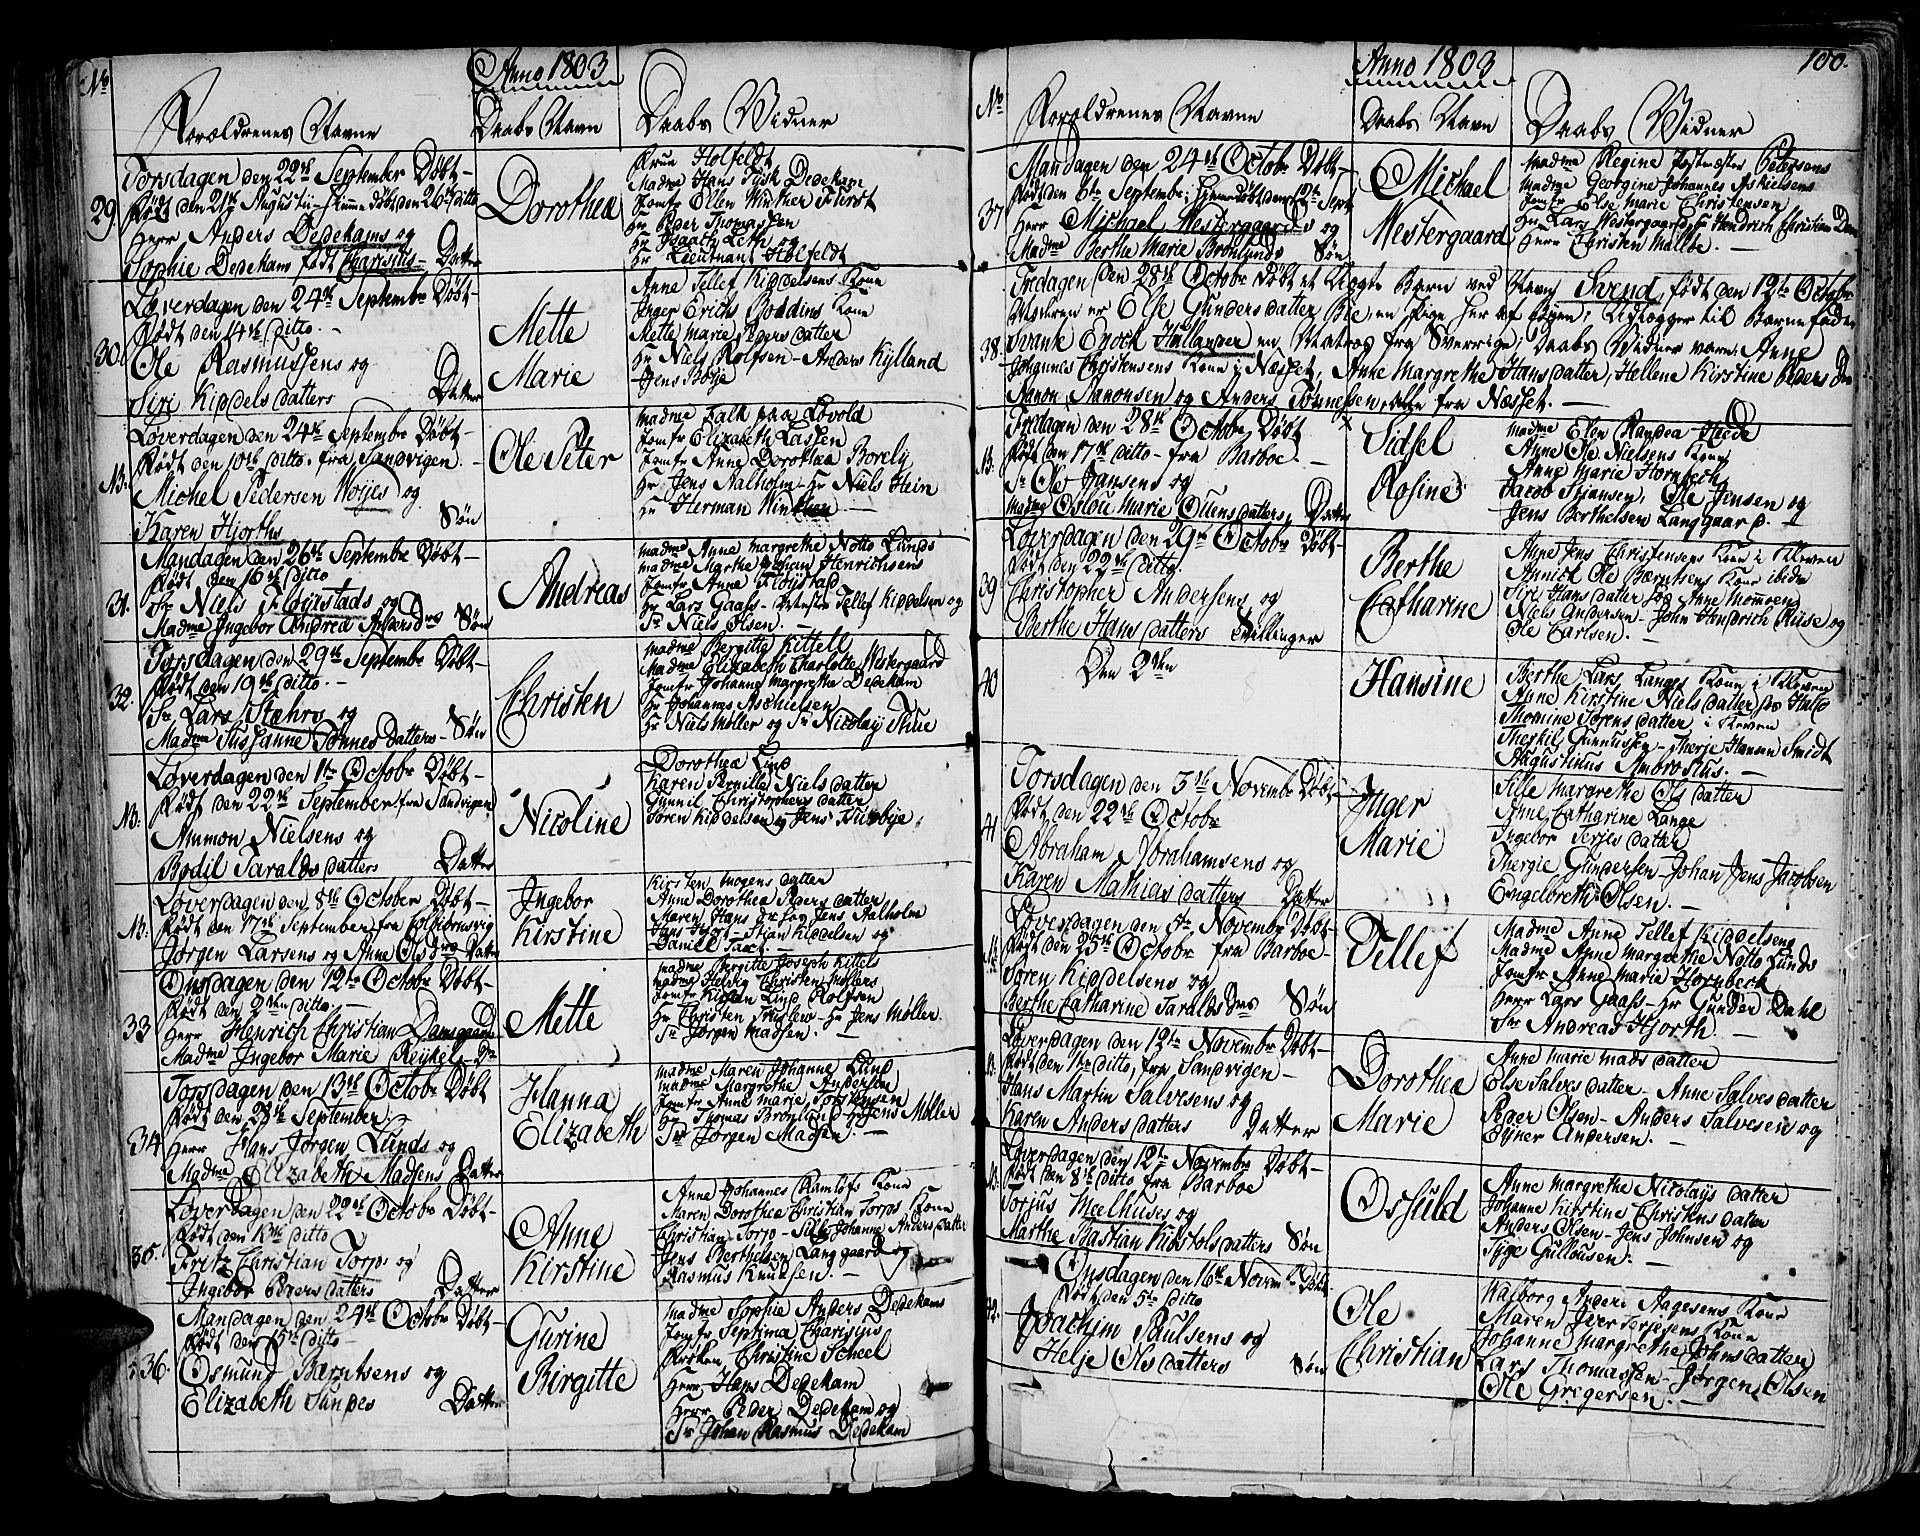 No
Anno 1803
Forældrenes Navne
Daabs Navn
Daabs Vidner
29.
Torsdagen den 22de September Døbt-
Født den 21de Augustii- hiemme døbt den 26de ditto
Herr Anders Dedekams og
Sophie Dedekam født Charisius- Datter
Dorothea
Frue Holfeldt
Madme Hans Tysk Dedekam
Jomfr Ellen Winther Fürst
Hr Peder Thomassen
Hr Isaach Leth og
Hr Lieutnant Holfeldt
30.
Løverdagen den 24de Septembr Døbt-
Født den 14de Ditto.-
Ole Rasmussens og
Siri Kiddels datters Datter
Mette
Marie
Anne Tellef Kiddelsens Kone
Inger Erichs Boddins Kone
Mette Marie Peders datter
Hr Niels Rolfsen- Anders Kylland
Jens Boije
N.B.
Løverdagen den 24de Septembr Døbt-
Født den 10de Ditto. fra Sandvigen.-
Michel Pedersen Woijes og
Karen Hjorths Søn
Ole Peter
Madme Falk paa Løvold
Jomfr Elizabeth Lassen
Jomfr Anne Dorothea Borely
Hr Jens Aalholm- Hr Niels Hein
Hr Herman Winther.-
31.
Mandagen den 26de Septembr Døbt-
Født den 16de Ditto
Sr Niels Fløystads og
Madme Ingebor Andrea Anders Dtrs Søn
Andreas
Madme Anna Margrethe Notto Lunds
Madme Marthe Johan Henrichsens
Jomfr Anne Fløystad
Hr Lars Gaass- Tellef Kiddelsen og
Sr Niels Olsen.-
32.
Torsdagen den 29de Septembr Døbt-
Født den 19de Ditto.-
Sr Lars Stæhrs og
Madme Sussanne Tønnes Datters- Søn
Christen
Madme Bergitte Kittell
Madme Elizabeth Charlotte Westergaard
Jomfr Johanne Margrethe Dedekam
Hr Johannes Aschielsen
Hr Niels Møller og Sr Nicolay Thue
N.B.
Løverdagen den 1te Octobr Døbt-
Født den 22de September fra Sandvigen
Ammon Nielsens og
Bodil Taralds datters Datter
Nicoline
Dorothea Lind
Karen Pernille Niels datter
Gunnil Christophers datter
Søren Kiddelsen og Jens Tuxbye.
N.B.
Løverdagen den 8de October Døbt-
Født den 17de September fra Colbiørnsvig
Jørgen Larsens og Anne Ols Dtrs Datter
Ingebor
Kirstine
Kirsten Mogens datter
Anne Dorothea Peders datter
Maren Hans Jens Aalholm
Hans Hjort- Stian Kiddelsen og
Daniel Taxt.-
33
Onsdagen den 12te Octobr Døbt-
Født den 2den Ditto.-
Herr Henrich Christian Damsgaards
Madme Ingebor Marie Reichel- Dtr
Mette
Madme Bergitte Joseph Kittels
Madme Helvig Christen Møllers
Jomfr Kirsten Lind Rolfsen
Hr Christen Truslew- Hr Jens Møller
Sr Jørgen Madsen.-
34
Torsdagen den 13de Octobr Døbt
Født den 23de September.
Herr Hans Jørgen Lunds og
Madme Elizabeth Madsens Datter
Hanna
Elizabeth
Madme Maren Johanne Lund
Madme Margrethe Andersen
Jomfr Anne Marie Torstensen
Hr Thomas Brønlund- Hr Jens Møller
Sr Jørgen Madsen.-
35.
Løverdagen den 22de Octobr Døbt-
Født den Ditto
Fritz Christian Torps og
Ingebor Peders datters Datter
Anne
Kirstine
Anne Johannes Ramløfs Kone
Maren Dorothea Christian Torps Kone
Christian Torp- Johanne Anders datter
Jens Berthelsen Langgaard og
Rasmus Knudsen.-
36.
Mandagen den 24de Octobr Døbt-
Født den 15de Ditto-
Osmund Berntsens og
Elizabeth Sundes Datter
Gurine
Birgitte
Madme Sophie Anders Dedekams
Jomfr Septima Charisius
Frøken Christine Scheel
Herr Hans Dedekam
Herr Peder Dedekam og
Sr Johan Rasmus Dedekam
No
Anno 1803
100.
Forældrenes Navne
Daabs Navn
Daabs Vidner
37
Mandagen den 24de Octobr Døbt-
Født den 6te September; hiemmedøbt den 12te Septr
Herr Michael Westergaards og
Madme Berthe Marie Brønlunds Søn
Michael
Westergaard
Madme Regine Postmester Petersens
Madme Georgine Johannes Askielsens
Jomfr Else Marie Christensen
Hr Lars Westergaard- Hr Hendrich Christian Dam
Herr Christen Mallbe.-
38.
Fredagen den 28de Octobr Døbt et Uægte Barn ved Navn Svend født den 12te Octobr
Moderen er Else Gunders datter Bie, en Pige her af Egen; Udlægger til Barnefader
Svanke Enock Hollander en Matros fra Sverrige; Daabs Vidner vare: Anne
Johannes Christensens Kone i Næsset, Anne Margrethe Hans datter, Hellene Kirstine Peders Dtr
Aanon Aanonsen og Anders Tønnessen, alle fra Næsset.-
N.B.
Fredagen den 28de Octobr Døbt
Født den 17de Ditto- fra Barboe.-
Sr Ole Jansens og
Madme Oslou Marie Ouens datters Datter
Sidsel
Rosine
Madme Elen Randea Hiede
Anne Ole Nielsens Kone
Anne Marie Hornbech
Jacob Stiansen, Ole Jensen og
Jens Berthelsen Langgaard.-
39
Løverdagen den 29de Octobr Døbt-
Født den 22de Ditto.
Christopher Andersens og
Berthe Hans datters Tvillinger
Berthe
Catharine
Anne Jens Christensens Kone i Kleven
Annich Ole Berntsens Kone ibidm
Siri Hans datter og Anne Mommen
Niels Andersen- John Hendrich Riise og
Ole Carlsen.-
40
Den 2den
Hansine
Berthe Lars Langes Kone i Kleven
Anne Kirstine Niels datter
Thomine Sørens datter i Kleven
Therkil Gunnussen- Therje Hansen Smidt
Augustinus Ambrosius.-
41
Torsdagen den 3de Novembr Døbt-
Født den 22de Octobr
Abraham Abrahamsens og
Karen Mathias datters Datter
Inger
Marie
Sille Margrethe Ols datter
Anne Catharine Lange
Ingebor Terjes datter
Thergie Gundersen- Johan Jens Jacobsen
Engelbreth Olsen.-
N.B.
Løverdagen den 5te Novembr Døbt-
Født den 25de Octobr fra Barboe-
Søren Kiddelsens og
Berthe Catharine Taralds Dtrs Søn
Tellef
Madme Anne Tellef Kiddelsens
Madme Anne Margrethe Notto Lunds
Jomfr Anne Marie Hornbech
Herr Lars Gaass- Hr Gunder Dahl
Sr Andreas Hjorth.-
N.B.
Løverdagen den 12te Novembr Døbt-
Født den 1te Ditto, fra Sandvigen-
Hans Martin Salvesens og
Karen Anders datters Datter
Dorothea
Marie
Anne Marie Mads datter
Else Salves datter- Anne Salves datter
Peder Olsen- Anders Salvesen og
Eyner Andersen.-
N.B.
Løverdagen den 12te Novembr Døbt-
Født den 8de Ditto fra Barboe
Torjus Meelhuses og
Marthe Bastian Kibsdals datters Søn
Ossuld
Anne Margrethe Nicolays datter
Johanne Kirstine Christens datter
Anders Olsen- Jens Johnsen og
Tyge Gullousen.-
42.
Onsdagen den 16de Novembr Døbt
Født den 5te Ditto
Joachim Paulsens og
Helje Ols datters Søn
Ole
Christian
Walborg Anders Aagesens Kone
Maren Iver Terjesens Kone
Johanne Margrethe Johns datter
Lars Thomassen- Jørgen Olsen
Ole Gregersen.-